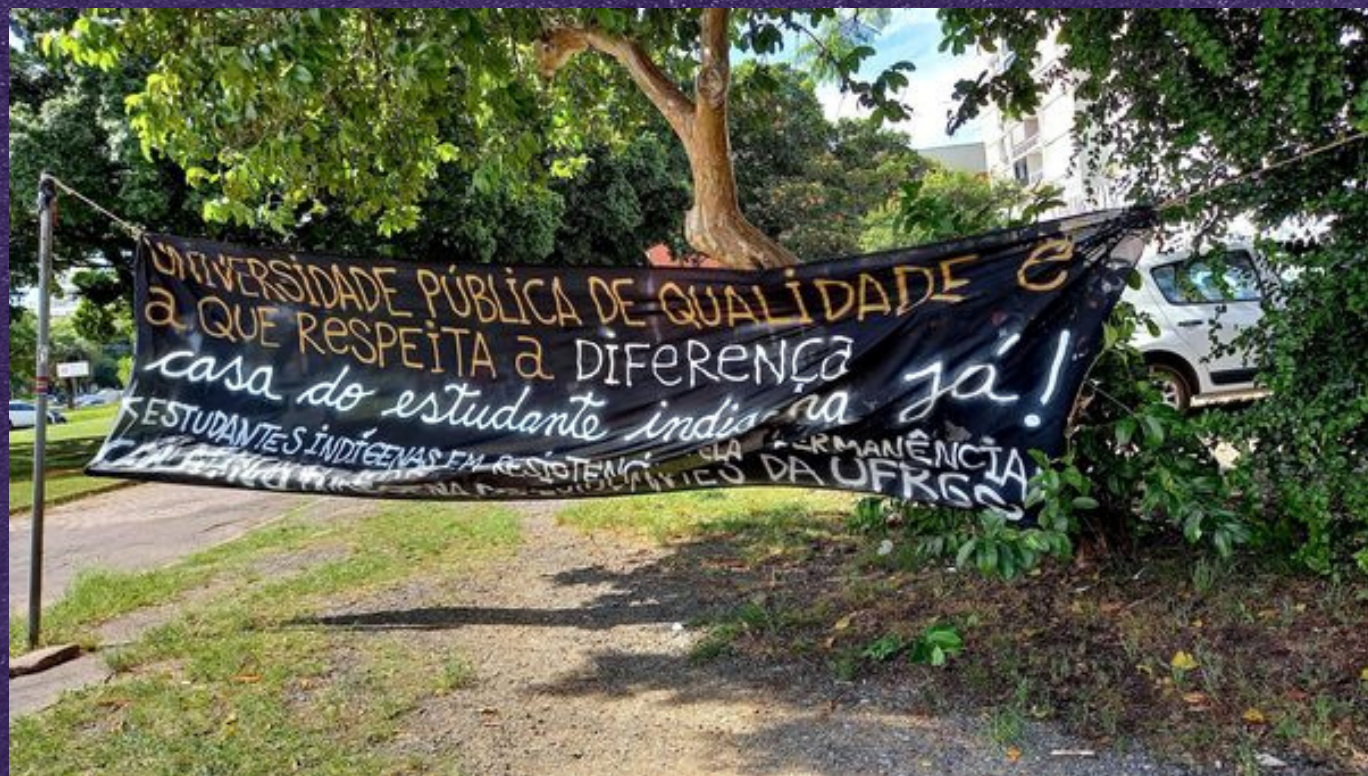 UNIVERSIDADE PÚBLICA DE QUALIDADE É
a QUE RESPEITA a DIFERENÇA
casa do estudante indígena já!
ESTUDANTES INDÍGENAS EM PERMANÊNCIA
DA UFRGS